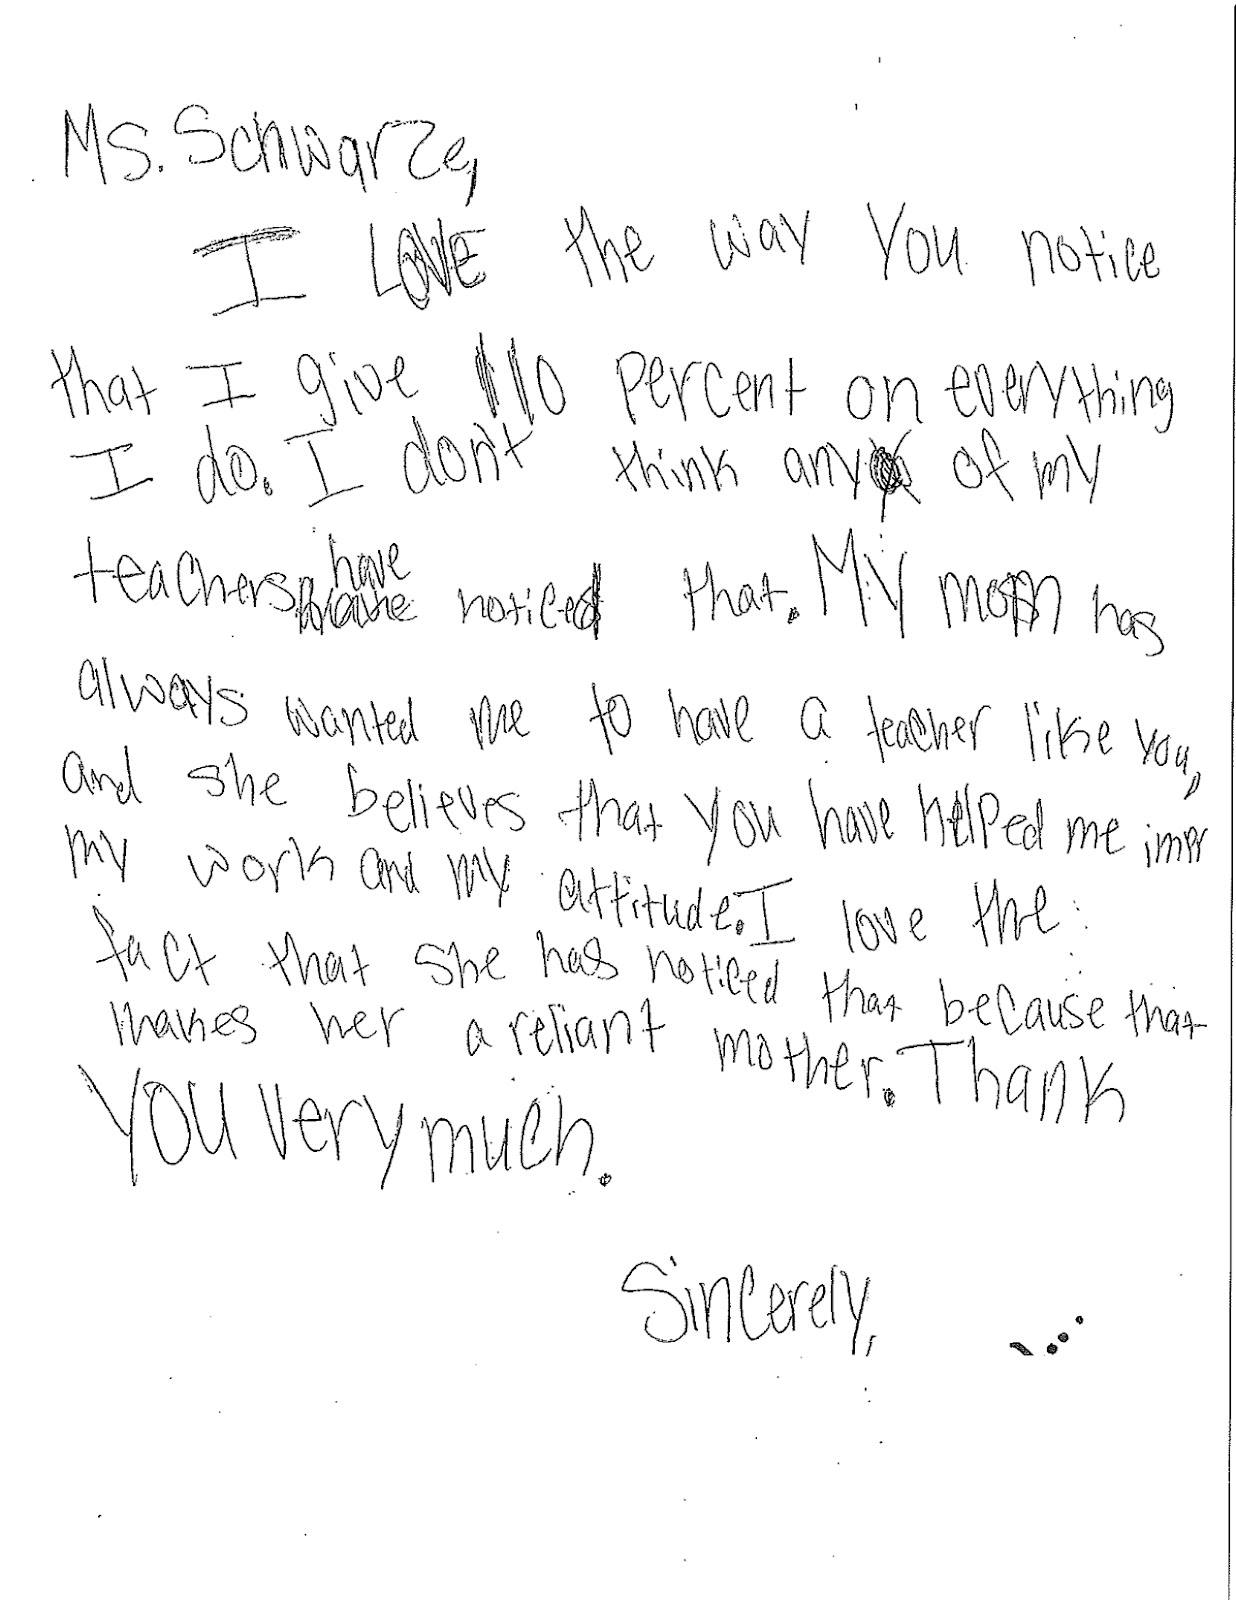 Ms. Schwarze,
I LOVE the way you notice
that I give 110 percent on everything
I do. I don't think any of my
teachers have noticed that. My mom has
always wanted me to have a teacher like you,
and she believes that you have helped me impr
my work and my attitude. I love the
fact that she has noticed that because that
makes her a reliant mother. Thank
you very much.
Sincerely,